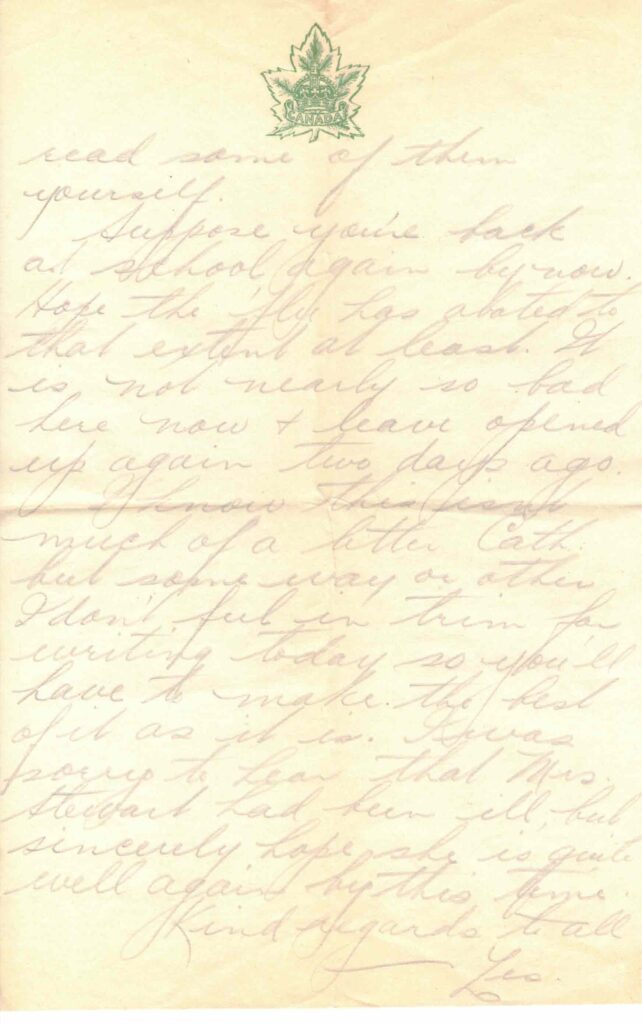 CANADA
read some of them
yourself.
Suppose you're back
at school again by now.
Hope the 'flu has abated to
that extent at least. It
is not nearly so bad
here now & leave opened
up again two days ago.
I know this isn't
much of a letter Cath.
but some way or other
I don't feel in trim for
writing today so you'll
have to make the best
of it as it is. I was
sorry to hear that Mrs.
Stewart had been ill, but
sincerely hope she is quite
well again by this time.
Kind regards to all
Les.